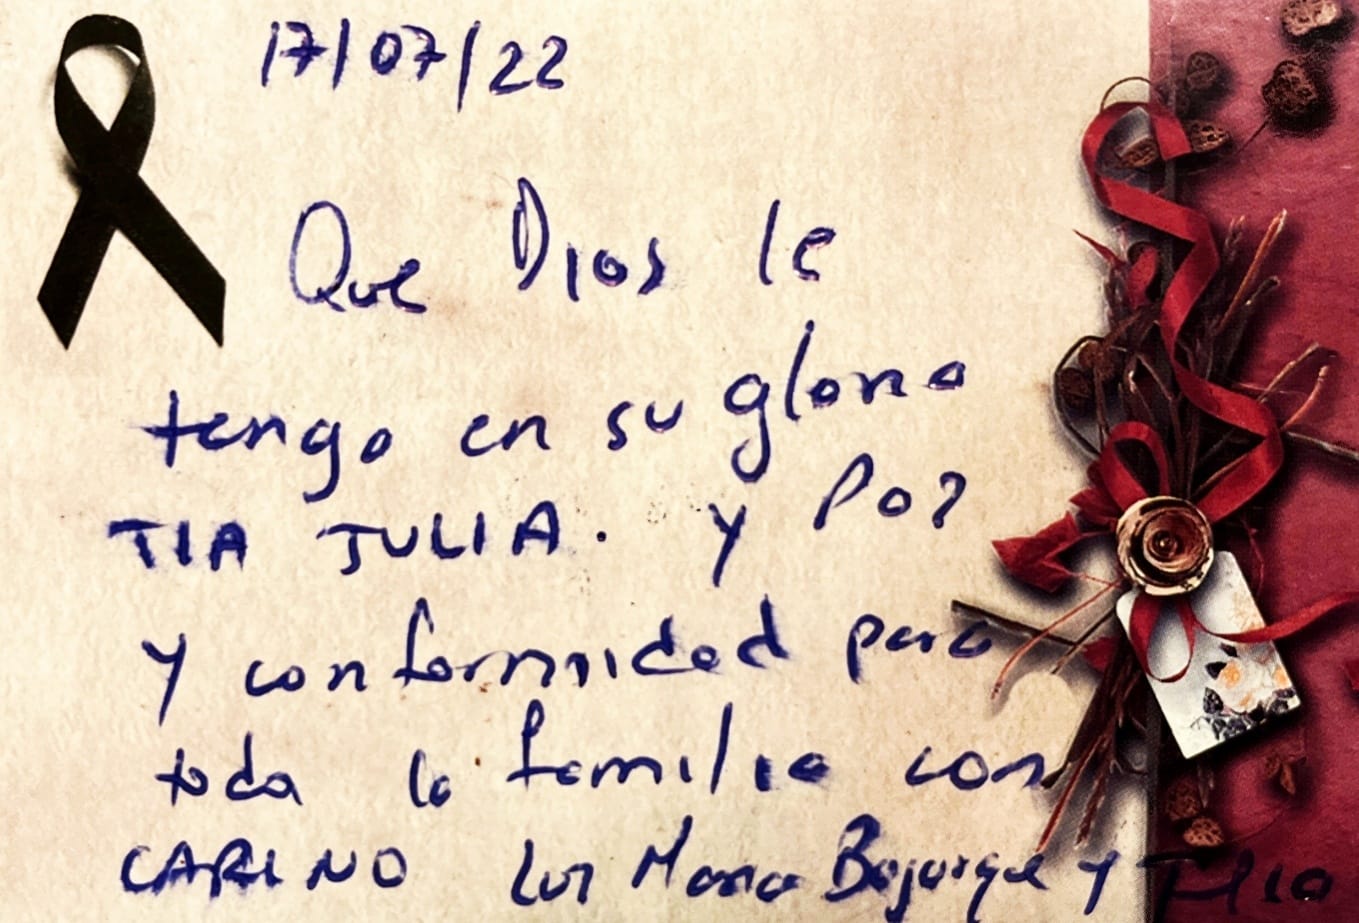 17/07/22
Que Dios le
tenga en su gloria
TIA JULIA. y Paz
y conformidad para
toda la familia con
CARINO Luz Maria Bojorque y